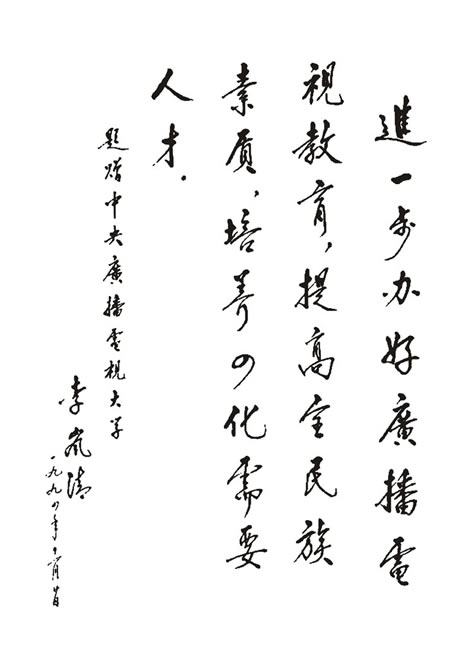 進一步办好廣播電
視教育，提高全民族
素质，培养四化需要
人才．
题赠中央廣播電視大学
李岚清
一九九四年